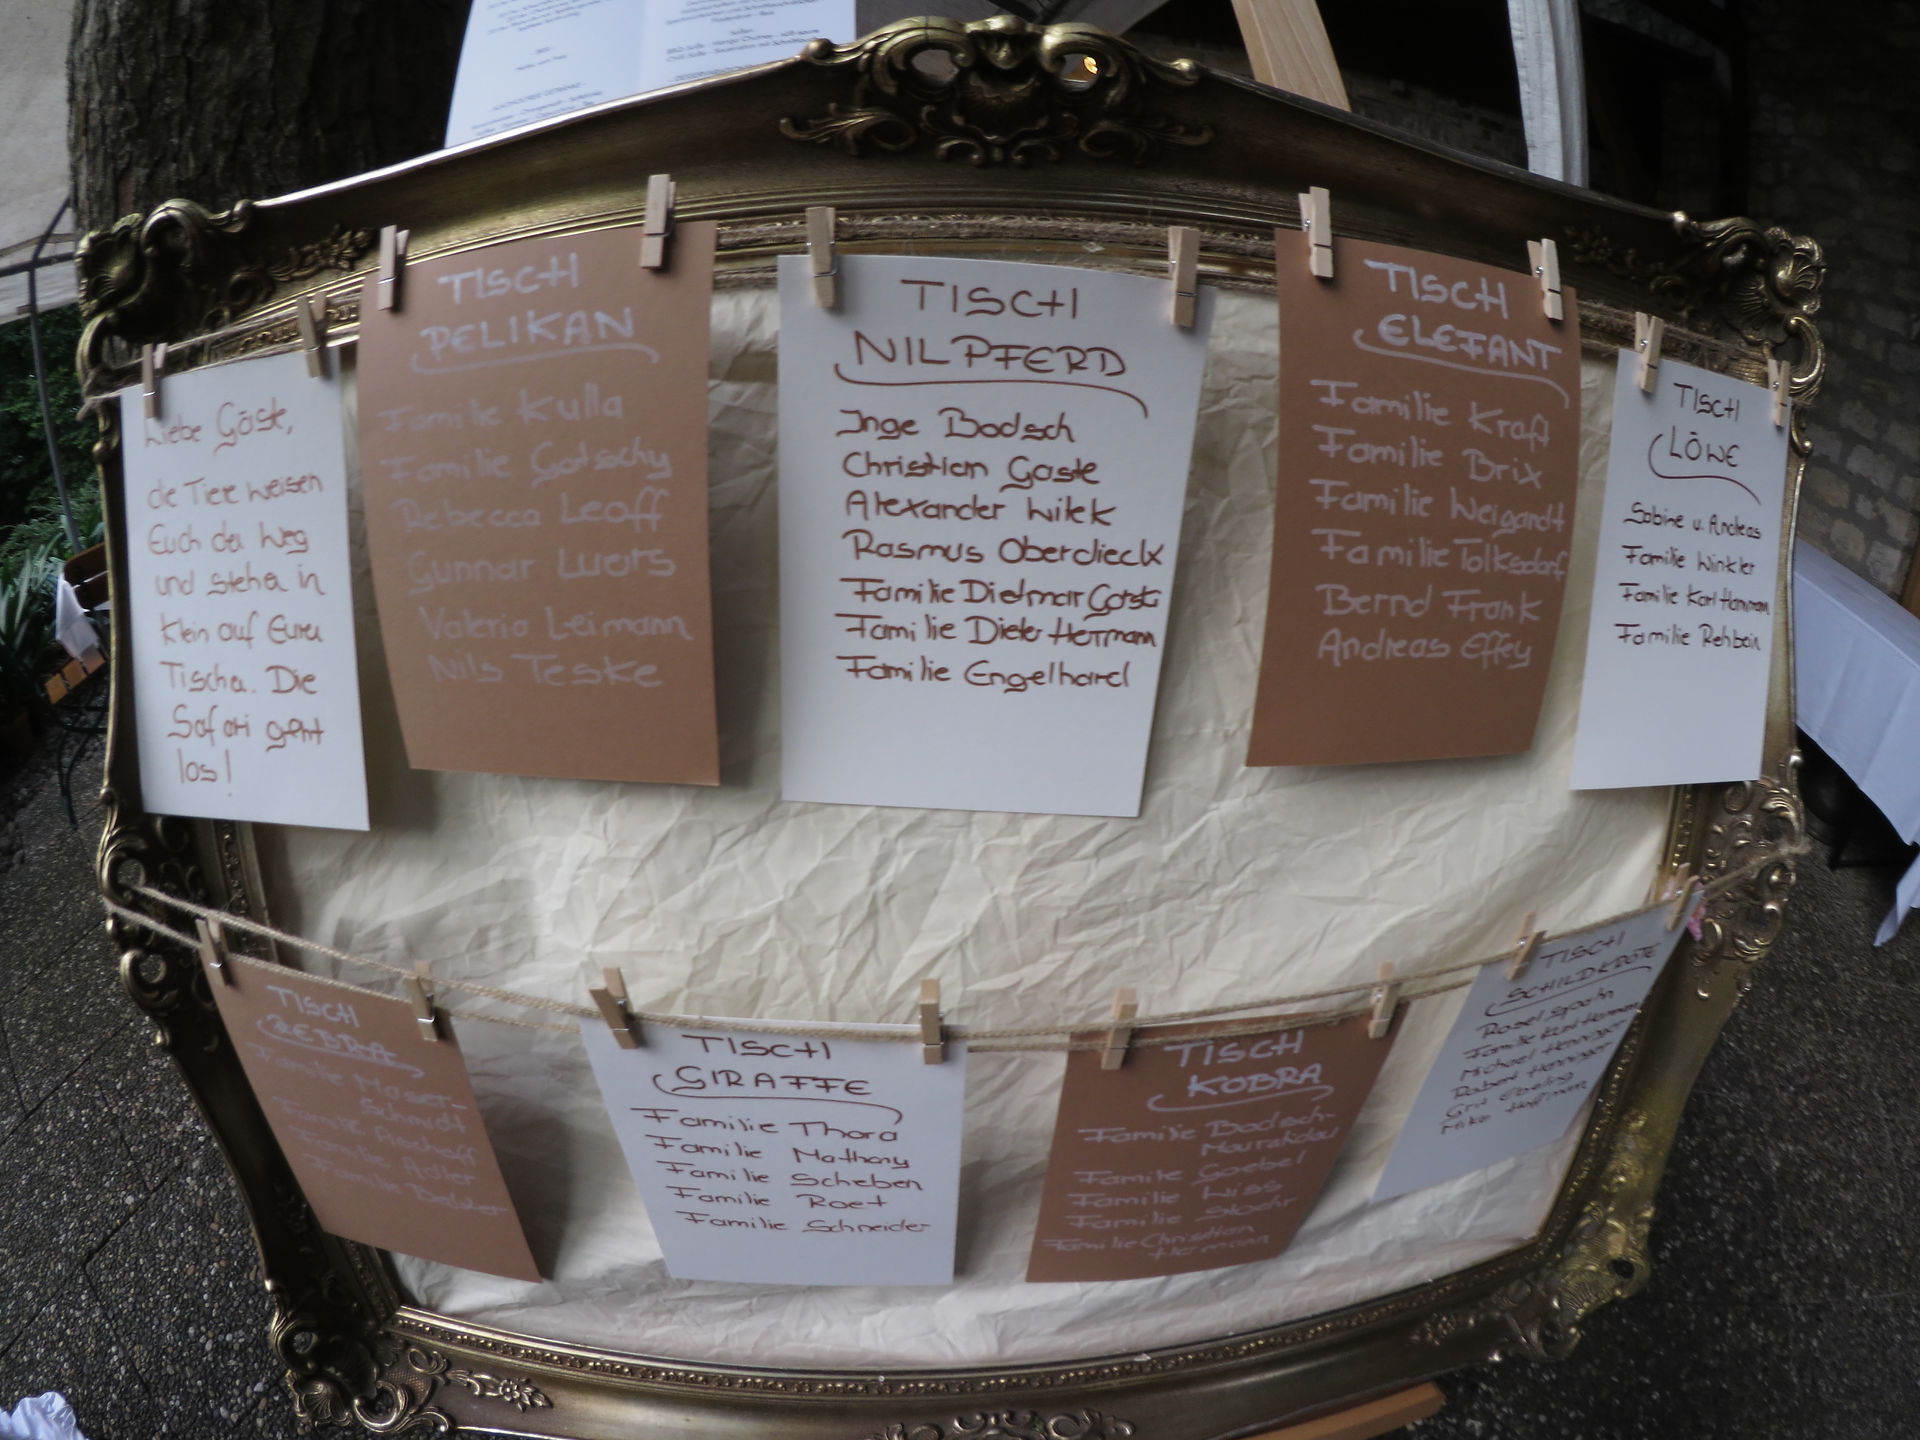 Liebe Gäste,
die Tiere weisen
Euch den Weg
und stehen in
klein auf Euren
Tischen. Die
Safari geht
los!
TISCH
PELIKAN
Familie Kulla
Familie Gotschy
Rebecca Leoff
Gunnar Luers
Valeria Leimann
Nils Teske
TISCH
NILPFERD
Inge Bodsch
Christian Gaste
Alexander Wilek
Rasmus Oberdieck
Familie Dietmar
Familie Dieter Herrmann
Familie Engelhard
TISCH
ELEFANT
Familie Kraft
Familie Brix
Familie Weigandt
Familie Tolksdorf
Bernd Frank
Andreas Effey
TISCH
LÖWE
Sabine u. Andreas
Familie Winkler
Familie Karl Hammann
Familie Rehbein
TISCH
ZEBRA
Familie Moser-
Schmidt
Familie Aischoff
Familie Adler
Familie
TISCH
GIRAFFE
Familie Thora
Familie Mathony
Familie Scheben
Familie Roet
Familie Schneider
TISCH
KOBRA
Familie Bodsch-
Familie Goebel
Familie Wiss
Familie Stoehr
Familie Christian
Hermann
TISCH
SCHILDKRÖTE
Rosel Spohn
Familie Kurt
Michael Henninger
Robert Henninger
Grit Ebeling
Mike Hoffmann